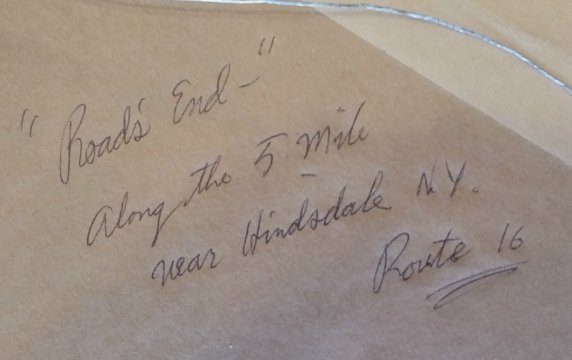 "Road's End-"
Along the 5 Mile
near Hindsdale N.Y.
Route 16